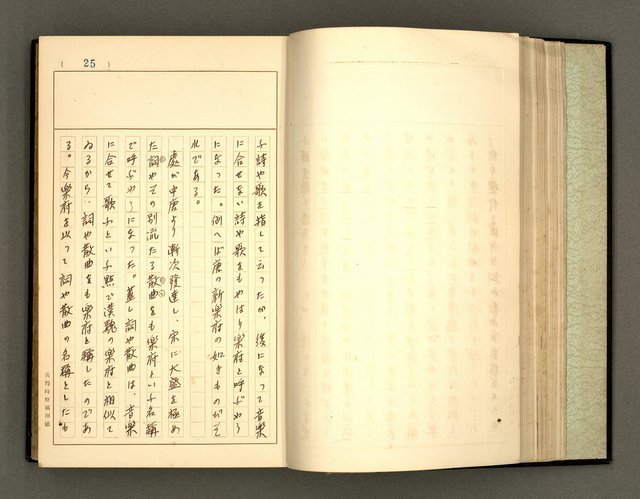 ( 25 )
ふ詩や歌を指して云つたが、後になつて音樂
に合せない詩や歌をもやはり樂府と呼ぶやう
になつた。例へば唐の新樂府の如きものがそ
れである。
處が中唐より漸次發達し、宋に大盛を極め
た詞やその別流たる散曲をも樂府といふ名稱
で呼ぶやうになつた。蓋し詞や散曲は、音樂
に合せて歌ふといふ點で漢魏の樂府と相似て
ゐるから、詞や散曲をも樂府と稱したのであ
る。今樂府を以つて詞や散曲の名稱としたも
黃得時原稿用紙